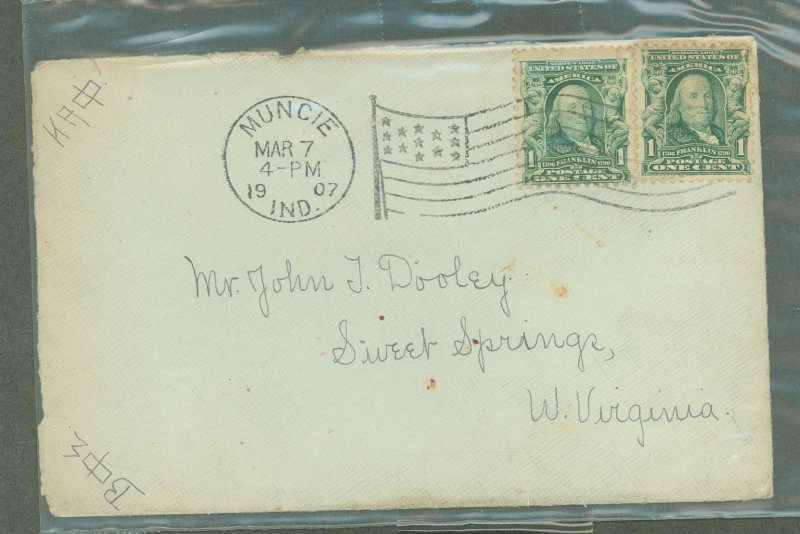 ΚΑΦ.
MUNCIE
MAR 7
4-PM
19 07
IND.
SERIES 1902
UNITED STATES OF
AMERICA
1 1706 FRANKLIN 1790 1
POSTAGE
ONE CENT
SERIES 1902
UNITED STATES OF
AMERICA
1 1706 FRANKLIN 1790 1
POSTAGE
ONE CENT
Mr. John T. Dooley
Sweet Springs,
W. Virginia.
ΒΦΣ.